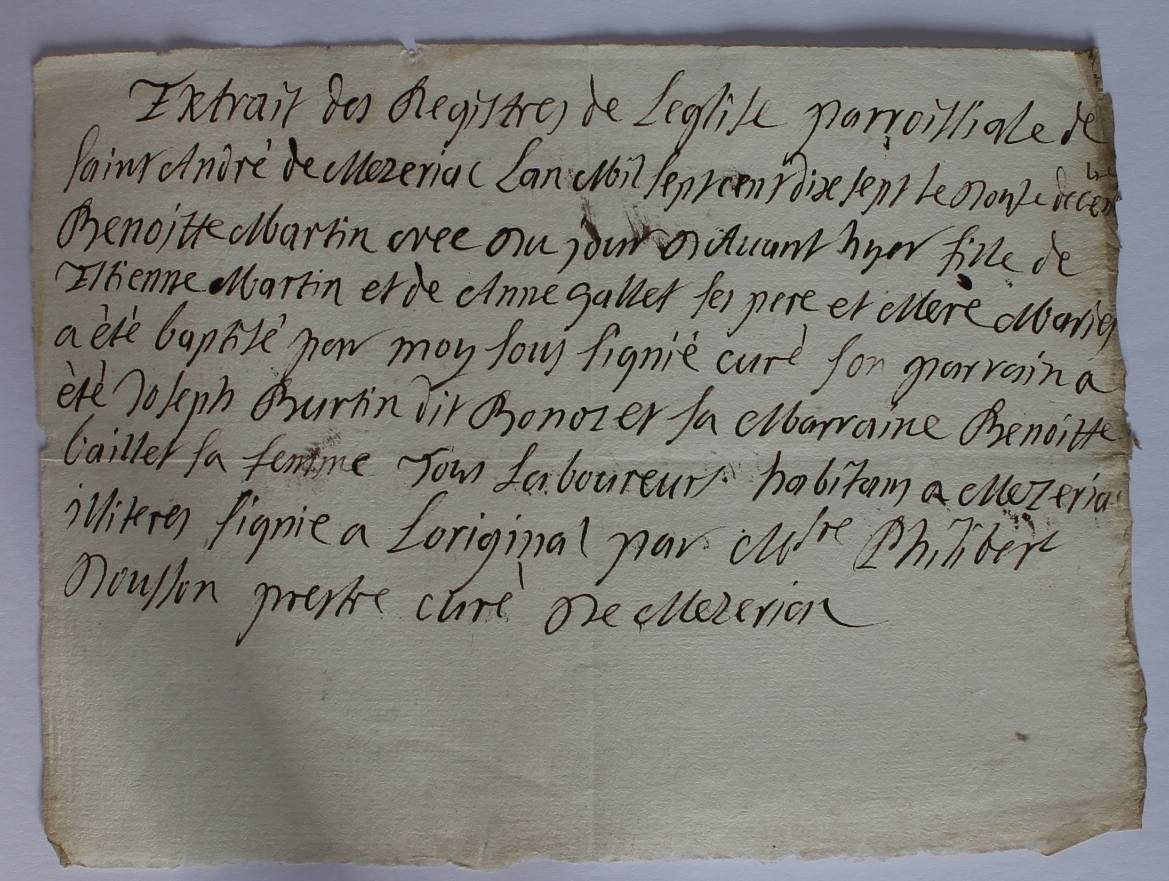 Extrait des Registres de Leglise parroissialle de
saint André de Mezeriac Lan Mil sept cent dixe sept le Douse decem bre
Benoitte Martin cree Du jour D'Avant hyer fille de
Estienne Martin et de Anne gallet ses pere et Mere Maries
a èté baptisé par moy sous signié curé son parrain a
èté Joseph Burtin dit Bonoz et sa Marraine Benoitte
baillet sa femme Tous Laboureurs habitans a Mezeria
illiteres signie a Loriginal par Mdre Philibert
prestre curé De Meseriac